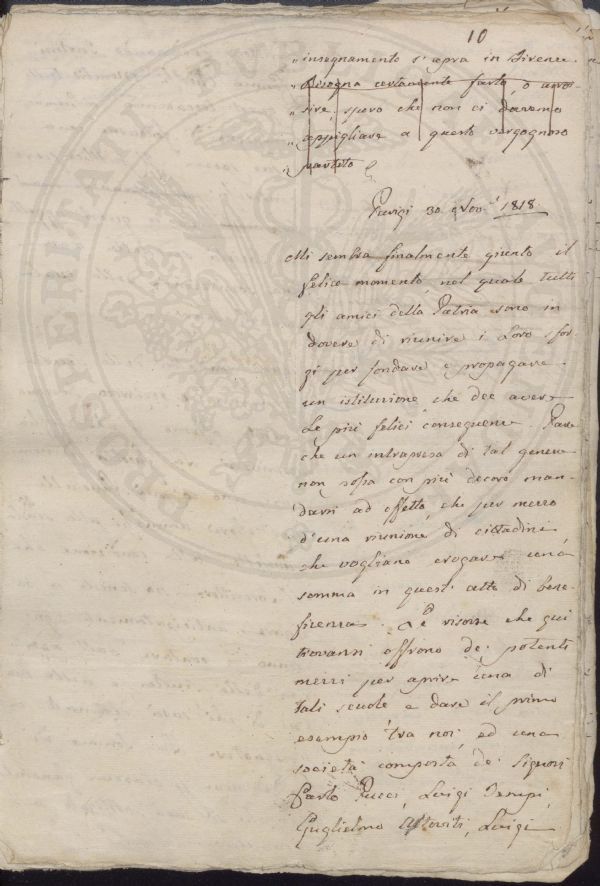 10
„ insegnamento s'apra in Firenze.
„ Bisogna certamente farlo, o arros-
„ sire, spero che non ci daremo
„ appigliare a questo vergognoso
„ partito
Parigi 30 9bre 1818.
Mi sembra finalmente giunto il
felice momento, nel quale tutti
gli amici della Patria sono in
dovere di riunire i Loro sfor-
zi per fondare e propagare
un istituzione, che dee avere
Le più felici conseguenze. Pare
che un intrapresa di tal genere
non possa con più decoro man-
darsi ad effetto, che per mezzo
d'una riunione di cittadini
che vogliano erogare una
somma in quest' atto di bene-
ficenza. Le risorse che qui
trovansi offrono de' potenti
mezzi per aprire una di
tali scuole e dare il primo
esempio tra noi, ed una
società composta de' Signori
Carlo Pucci, Luigi Tempi,
Guglielmo Altoviti, Luigi
PROSPERITATI PUB